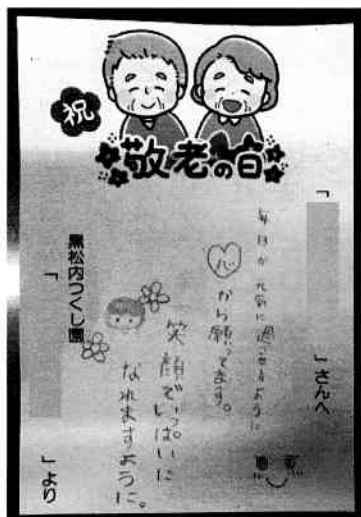 祝
敬老の日
「　」さんへ
毎日が 元気に過ごせるように
心から願ってます。
笑顔でいっぱいに
なれますように。
黒松内つくし園
「　」より